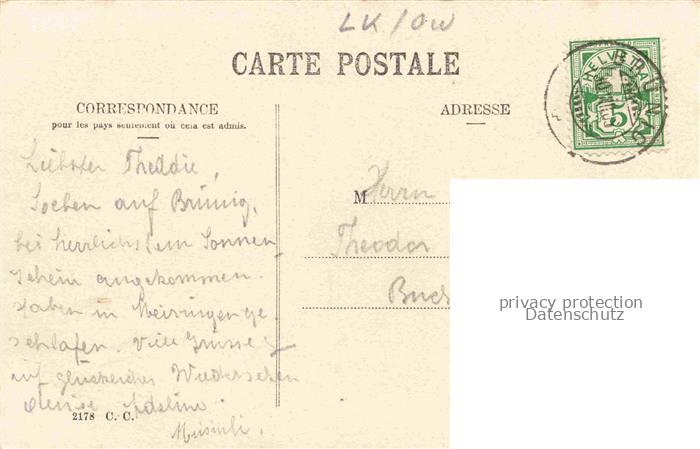 LK/OW
CARTE POSTALE
HELVETIA
5
CORRESPONDANCE
pour les pays seulement où cela est admis.
ADRESSE
Liebster Theddie,
Soeben auf Brünig,
bei herrlichstem Sonnen
schein angekommen.
Haben in Meiringen ge
schlafen. Viele Grüsse
auf glückliches Wiedersehen
Adeline.
2178 C. C.
M Herrn
Theodor
privacy protection
Datenschutz